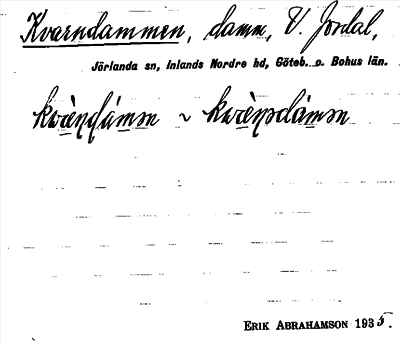 Kvarndammen, damm, V. Jordal,
Jörlanda sn, Inlands Nordre hd, Göteb. o. Bohus län.
ERIK ABRAHAMSON 1935.